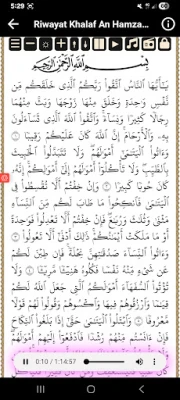 5:29
81%
Riwayat Khalaf An Hamza...
بِسْمِ اللَّهِ الرَّحْمَٰنِ الرَّحِيمِ
يَٰٓأَيُّهَا النَّاسُ اتَّقُوا رَبَّكُمُ الَّذِي خَلَقَكُم مِّن
نَّفْسٍ وَٰحِدَةٍ وَخَلَقَ مِنْهَا زَوْجَهَا وَبَثَّ مِنْهُمَا
رِجَالًا كَثِيرًا وَنِسَآءً وَاتَّقُوا اللَّهَ الَّذِي تَسَآءَلُونَ
بِهِۦ وَالْأَرْحَامِ إِنَّ اللَّهَ كَانَ عَلَيْكُمْ رَقِيبًا ١
وَءَاتُوا الْيَتَٰمَىٰٓ أَمْوَٰلَهُمْ وَلَا تَتَبَدَّلُوا الْخَبِيثَ
بِالطَّيِّبِ وَلَا تَأْكُلُوٓا أَمْوَٰلَهُمْ إِلَىٰٓ أَمْوَٰلِكُمْ إِنَّهُۥ
كَانَ حُوبًا كَبِيرًا ٢ وَإِنْ خِفْتُمْ أَلَّا تُقْسِطُوا فِي
الْيَتَٰمَىٰ فَانكِحُوا مَا طَابَ لَكُم مِّنَ النِّسَآءِ
مَثْنَىٰ وَثُلَٰثَ وَرُبَٰعَ فَإِنْ خِفْتُمْ أَلَّا تَعْدِلُوا فَوَٰحِدَةً
أَوْ مَا مَلَكَتْ أَيْمَٰنُكُمْ ذَٰلِكَ أَدْنَىٰٓ أَلَّا تَعُولُوا ٣
وَءَاتُوا النِّسَآءَ صَدُقَٰتِهِنَّ نِحْلَةً فَإِن طِبْنَ لَكُمْ
عَن شَيْءٍ مِّنْهُ نَفْسًا فَكُلُوهُ هَنِيٓـًٔا مَّرِيٓـًٔا ٤ وَلَا
تُؤْتُوا السُّفَهَآءَ أَمْوَٰلَكُمُ الَّتِي جَعَلَ اللَّهُ لَكُمْ
قِيَٰمًا وَارْزُقُوهُمْ فِيهَا وَاكْسُوهُمْ وَقُولُوا لَهُمْ قَوْلًا
مَّعْرُوفًا ٥ وَابْتَلُوا الْيَتَٰمَىٰ حَتَّىٰٓ إِذَا بَلَغُوا النِّكَاحَ
فَإِنْ ءَانَسْتُم مِّنْهُمْ رُشْدًا فَادْفَعُوٓا إِلَيْهِمْ أَمْوَٰلَهُمْ
0:10 / 1:14:57